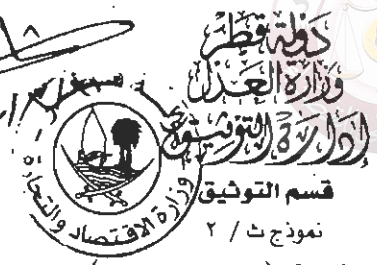 دولة قطر
وزارة العدل
إدارة التوثيق
قسم التوثيق
نموذج ث / ٢
وزارة الاقتصاد والتجارة